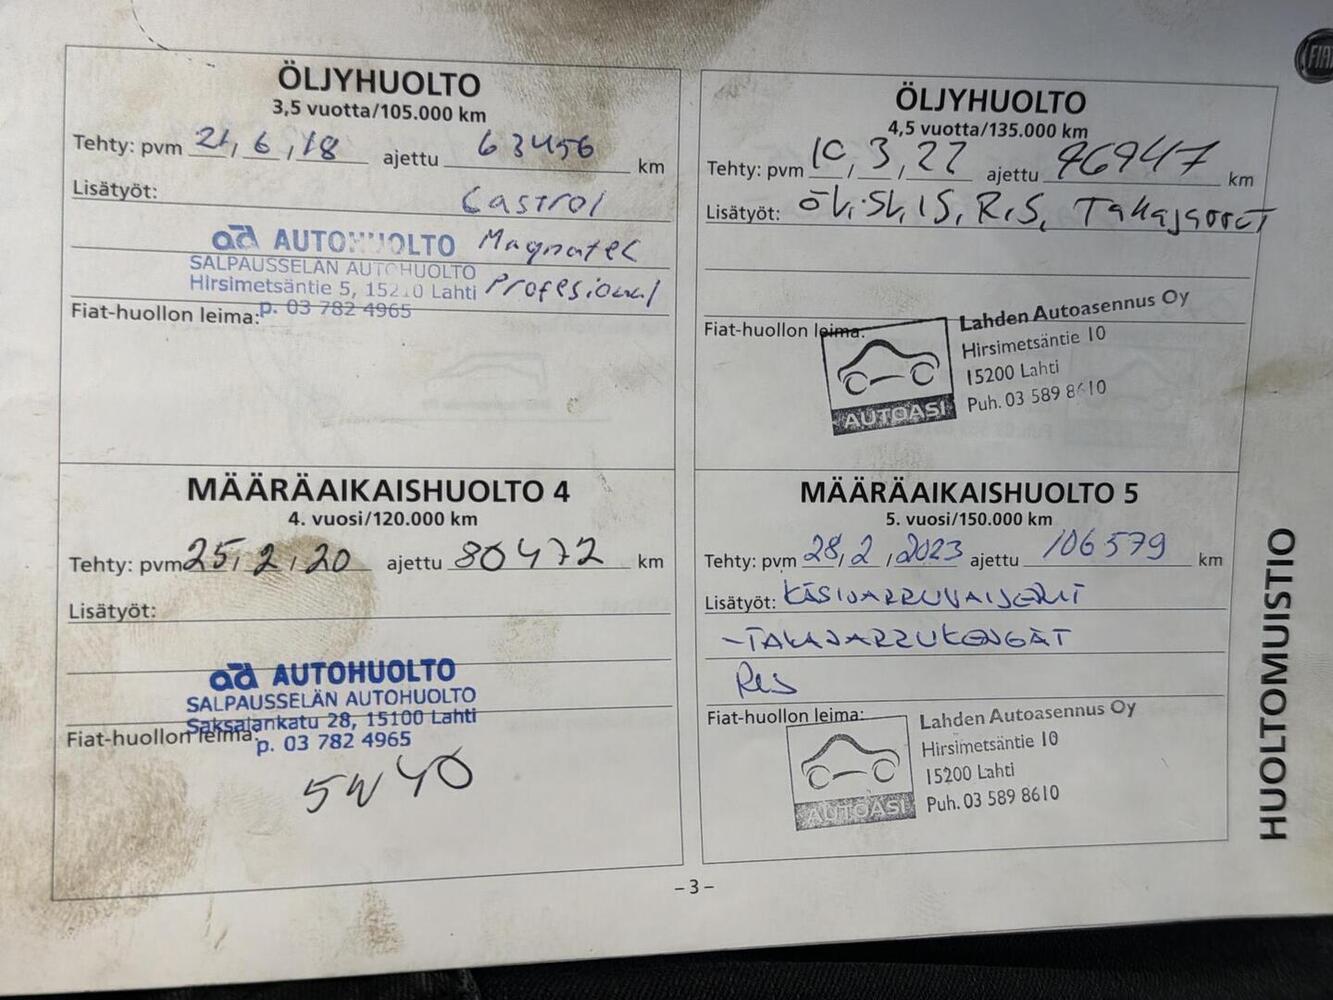 FIAT
ÖLJYHUOLTO
3,5 vuotta/105.000 km
Tehty: pvm 21, 6, 18 ajettu 63456 km
Lisätyöt:
Castrol
Magnatec
Profesional
ad AUTOHUOLTO
SALPAUSSELÄN AUTOHUOLTO
Hirsimetsäntie 5, 15210 Lahti
p. 03 782 4965
Fiat-huollon leima:
ÖLJYHUOLTO
4,5 vuotta/135.000 km
Tehty: pvm 10, 3, 22 ajettu 96947 km
Lisätyöt: ÖL, SL, IS, R.S, Takajarrut
Fiat-huollon leima:
AUTOASI
Lahden Autoasennus Oy
Hirsimetsäntie 10
15200 Lahti
Puh. 03 589 8610
MÄÄRÄAIKAISHUOLTO 4
4. vuosi/120.000 km
Tehty: pvm 25, 2, 20 ajettu 80472 km
Lisätyöt:
ad AUTOHUOLTO
SALPAUSSELÄN AUTOHUOLTO
Saksalankatu 28, 15100 Lahti
p. 03 782 4965
Fiat-huollon leima:
5W40
MÄÄRÄAIKAISHUOLTO 5
5. vuosi/150.000 km
Tehty: pvm 28, 2, 2023 ajettu 106579 km
Lisätyöt: KÄSIJARRUVAIJERIT
-TAKAJARRUKENGÄT
RES
Fiat-huollon leima:
AUTOASI
Lahden Autoasennus Oy
Hirsimetsäntie 10
15200 Lahti
Puh. 03 589 8610
HUOLTOMUISTIO
-3-